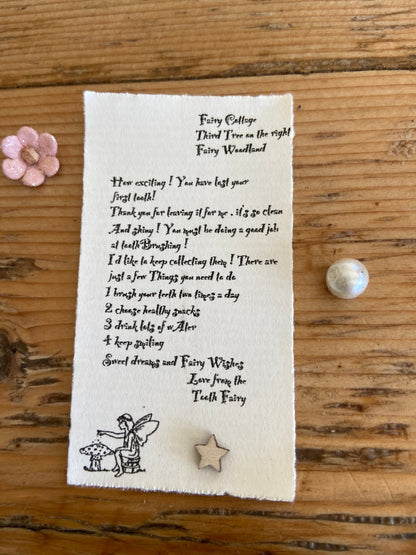 Fairy Cottage
Third Tree on the right
Fairy Woodland
How exciting ! You have lost your
first tooth!
Thank you for leaving it for me . it's so clean
And shiny ! You must be doing a good job
at toothBrushing !
I'd like to keep collecting them ! There are
just a few Things you need to do
1 brush your teeth two times a day
2 choose healthy snacks
3 drink lots of wAter
4 keep smiling
Sweet dreams and Fairy Wishes
Love from the
Tooth Fairy